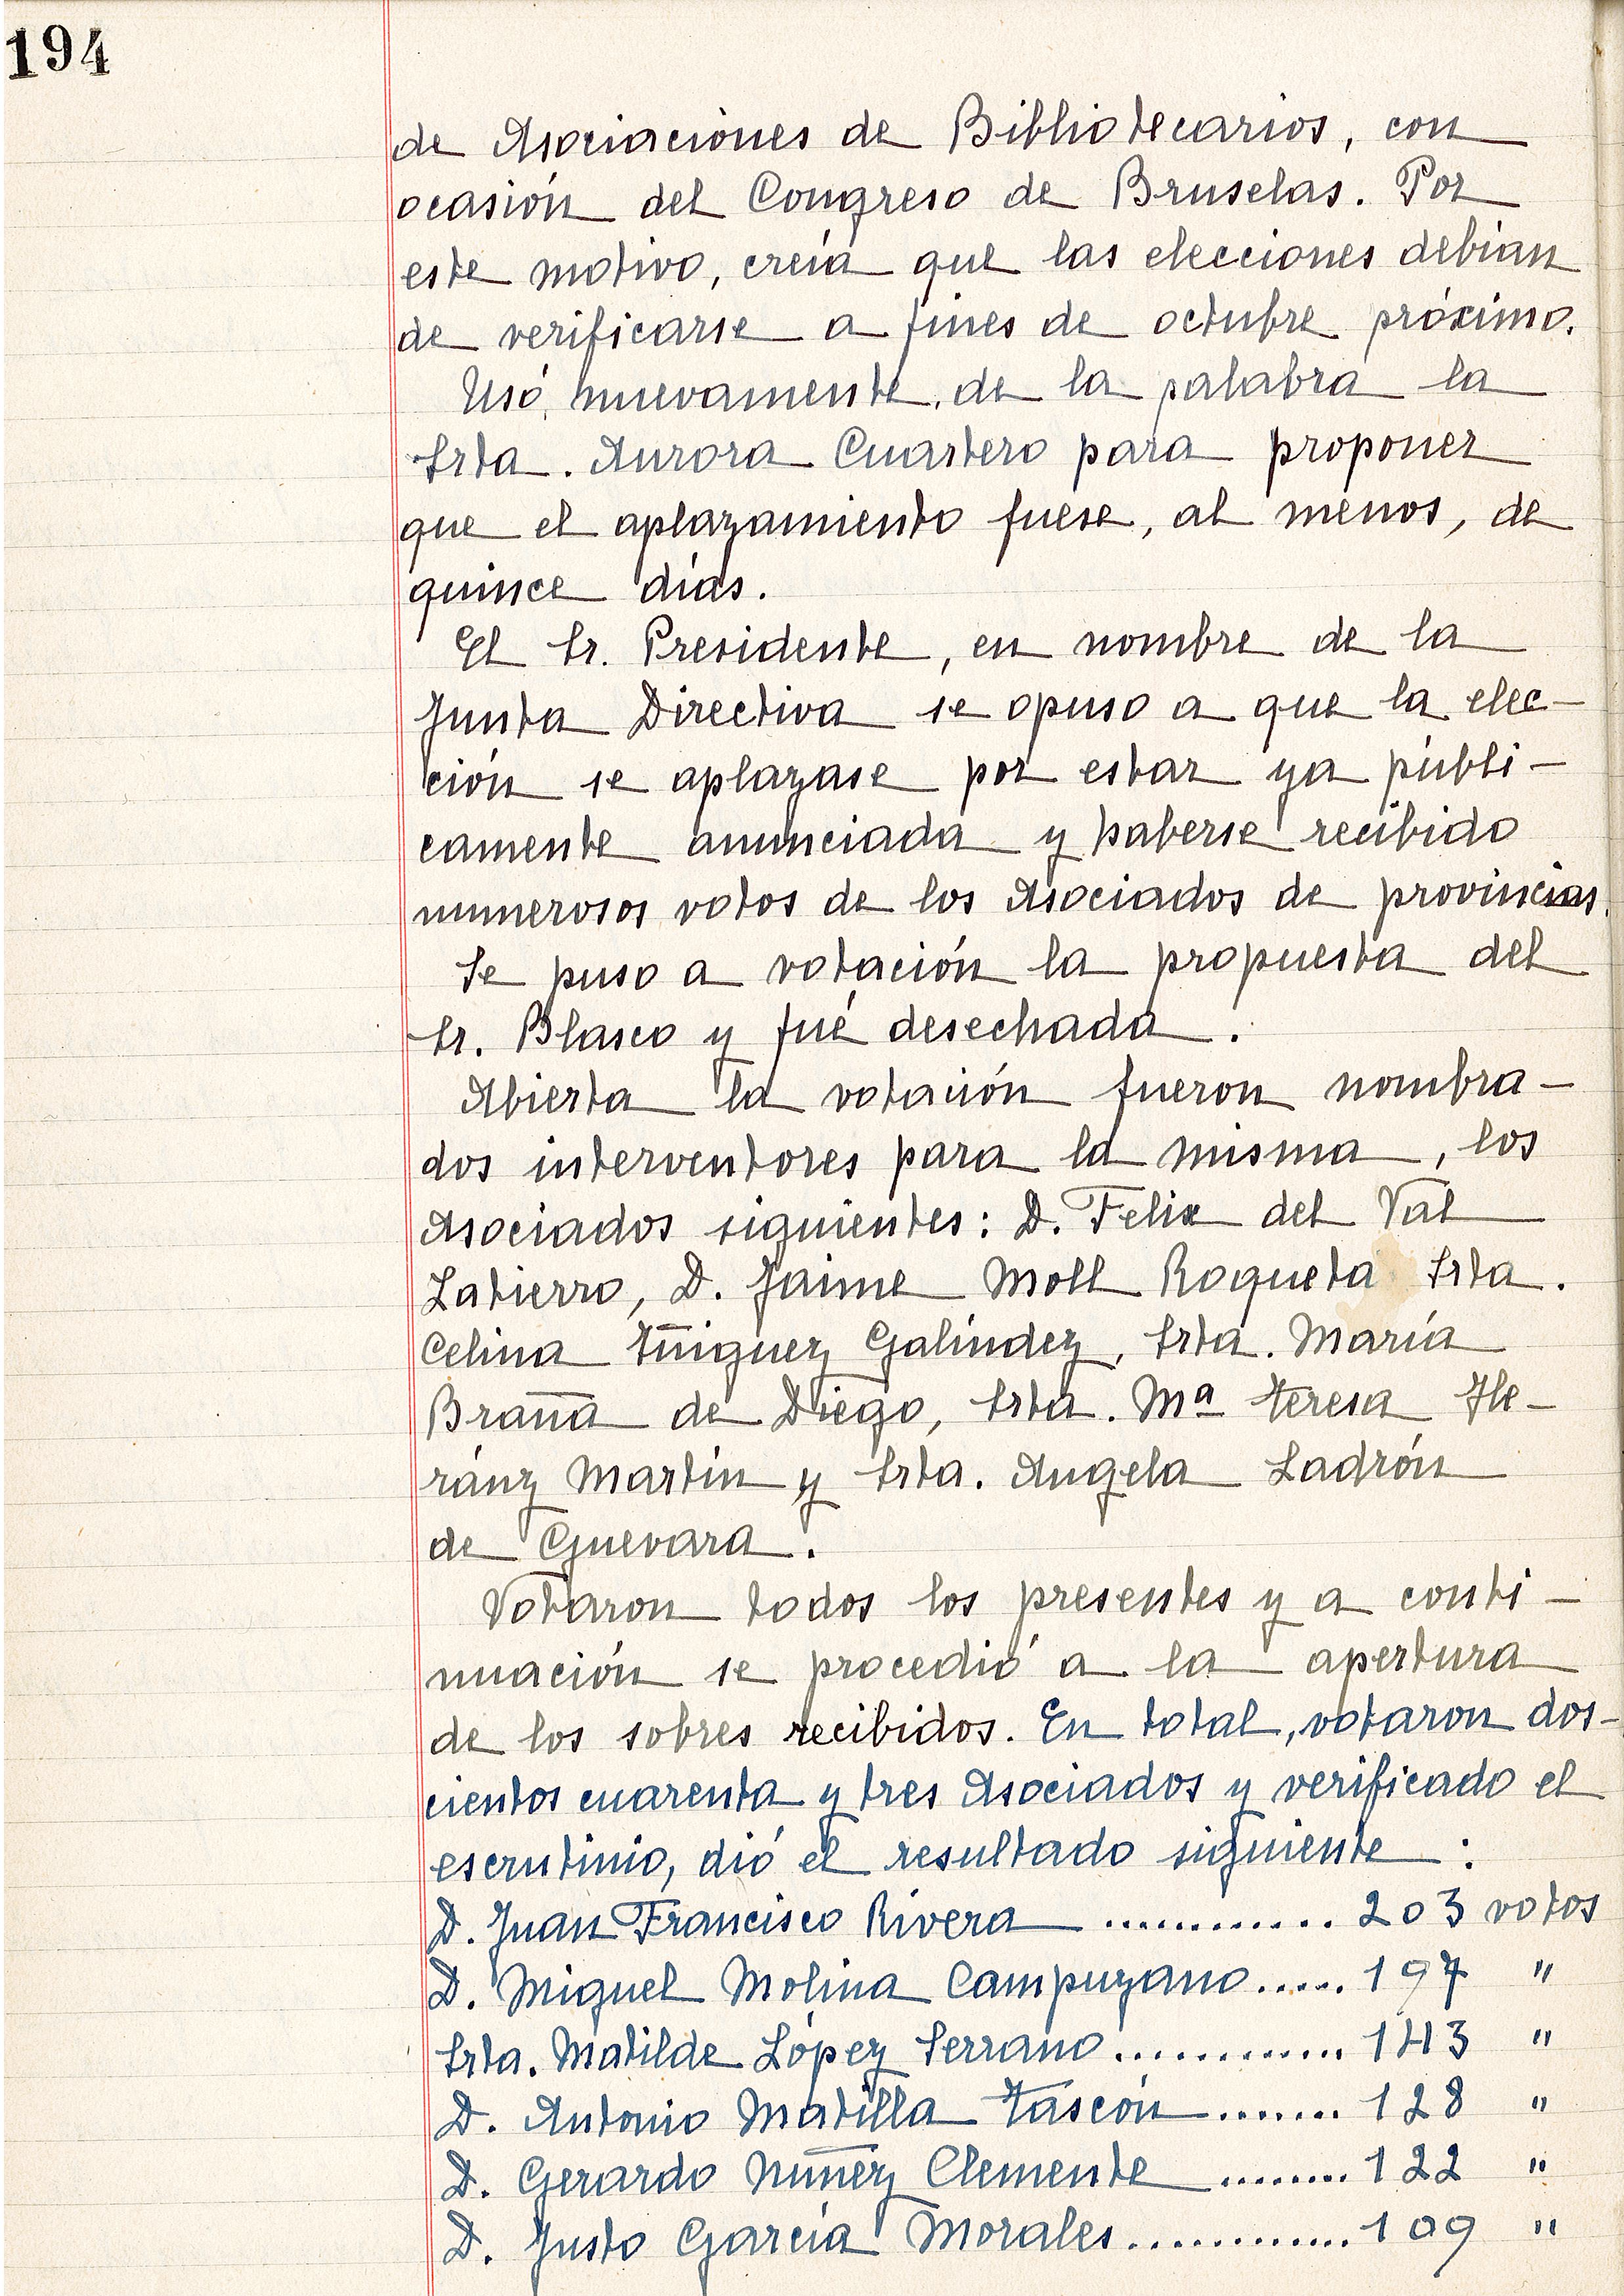 194
de Asociaciones de Bibliotecarios, con
ocasión del Congreso de Bruselas. Por
este motivo, creía que las elecciones debían
de verificarse a fines de octubre próximo.
Usó, nuevamente, de la palabra la
Srta. Aurora Cuartero para proponer
que el aplazamiento fuese, al menos, de
quince días.
El Sr. Presidente, en nombre de la
Junta Directiva se opuso a que la elec-
ción se aplazase por estar ya públi-
camente anunciada y haberse recibido
numerosos votos de los Asociados de provincias.
Se puso a votación la propuesta del
Sr. Blasco y fué desechada.
Abierta la votación fueron nombra-
dos interventores para la misma, los
Asociados siguientes: D. Felix del Val
Latierro, D. Jaime Moll Roqueta Srta.
Celina Iñiguez Galíndez, Srta. María
Braña de Diego, Srta. Mª Teresa He-
ránz Martín y Srta. Angela Ladrón
de Guevara.
Votaron todos los presentes y a conti-
nuación se procedió a la apertura
de los sobres recibidos. En total, votaron dos-
cientos cuarenta y tres Asociados y verificado el
escrutinio, dió el resultado siguiente:
D. Juan Francisco Rivera ............ 203 votos
D. Miguel Molina Campuzano..... 197 "
Srta. Matilde López Serrano ............. 143 "
D. Antonio Matilla Tascón ....... 128 "
D. Gerardo Núñez Clemente ........ 122 "
D. Justo García Morales............. 109 "